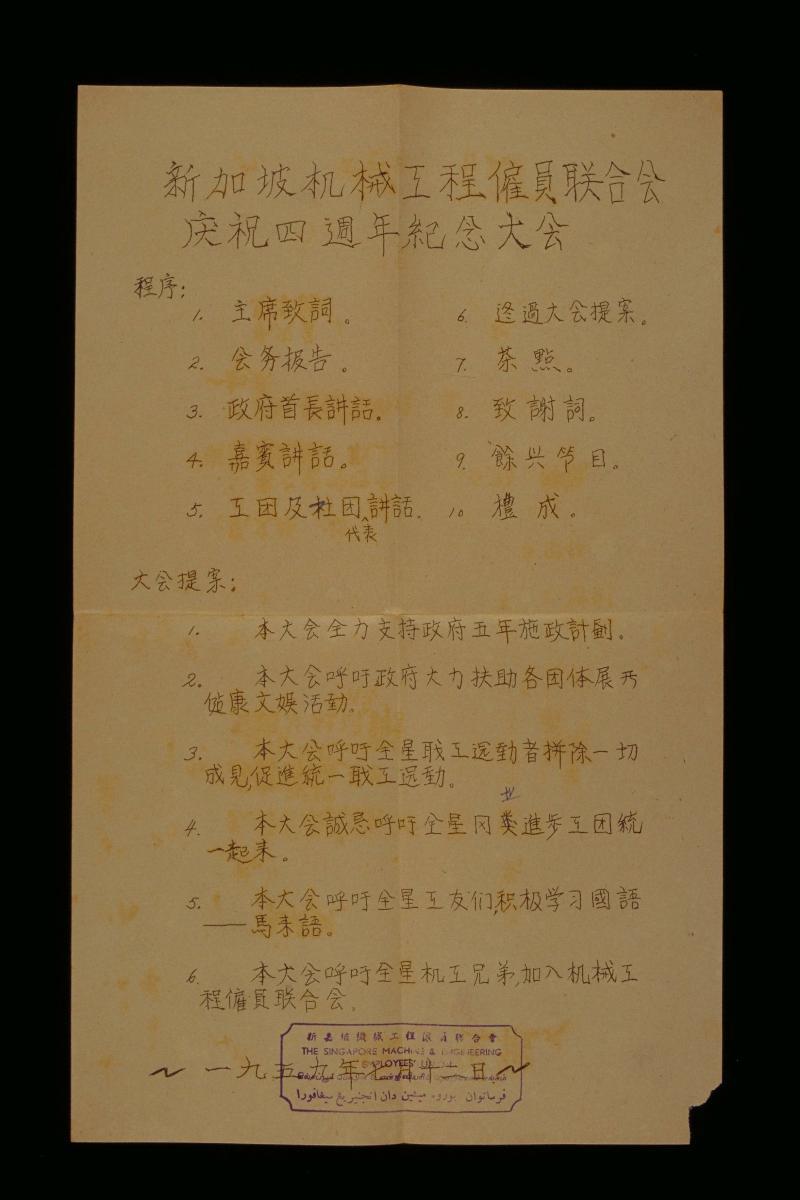 新加坡机械工程僱員联合会
庆祝四週年紀念大会
程序:
1. 主席致詞。
2. 会务报告。
3. 政府首長讲話。
4. 嘉賓讲話。
5. 工团及社团代表讲話.
6. 通過大会提案。
7. 茶點。
8. 致謝詞。
9. 餘兴节目。
10 禮成。
大会提案:
1. 本大会全力支持政府五年施政計劃。
2. 本大会呼吁政府大力扶助各团体展开
健康文娱活動。
3. 本大会呼吁全星职工运動者拼除一切
成見,促進統一职工运動。
4. 本大会誠恳呼吁全星同業進步工团統
一起来。
5. 本大会呼吁全星工友们,积极学习國語
——馬来語。
6. 本大会呼吁全星机工兄弟,加入机械工
程僱員联合会.
新嘉坡機械工程雇員聯合會
THE SINGAPORE MACHINE & ENGINEERING
EMPLOYEES'
~ 一九五九年 日 ~